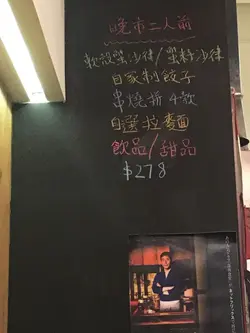 晚市二人前
軟殼蟹沙律/蟹籽沙律
自家制餃子
串燒拼4款
自選拉麵
飲品/甜品
$278